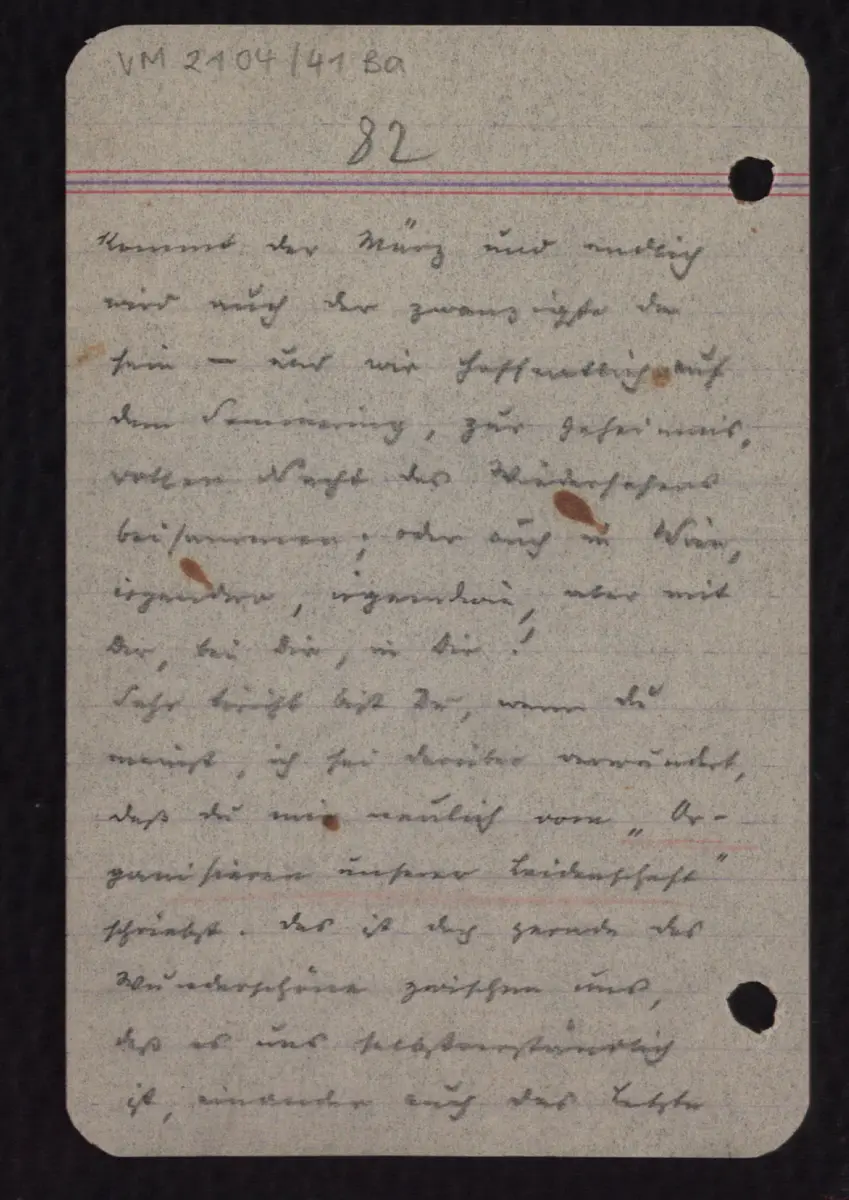 VM 2104/41 Ba
82
kommt der März und endlich
wird auch der zwanzigste da
sein – und wir hoffentlich auf
dem Semmering, zur geheimnis-
vollen Nacht des Wiedersehens
beisammen; oder auch in Wien,
irgendwo, irgendwie, aber mit
Dir, bei Dir, in Dir!
Sehr töricht bist Du, wenn Du
meinst, ich sei darüber verwundert,
daß Du mir neulich vom „Or-
ganisieren unserer Leidenschaft"
schriebst. Das ist doch gerade das
Wunderschöne zwischen uns,
daß es uns selbstverständlich
ist, einander auch das Letzte